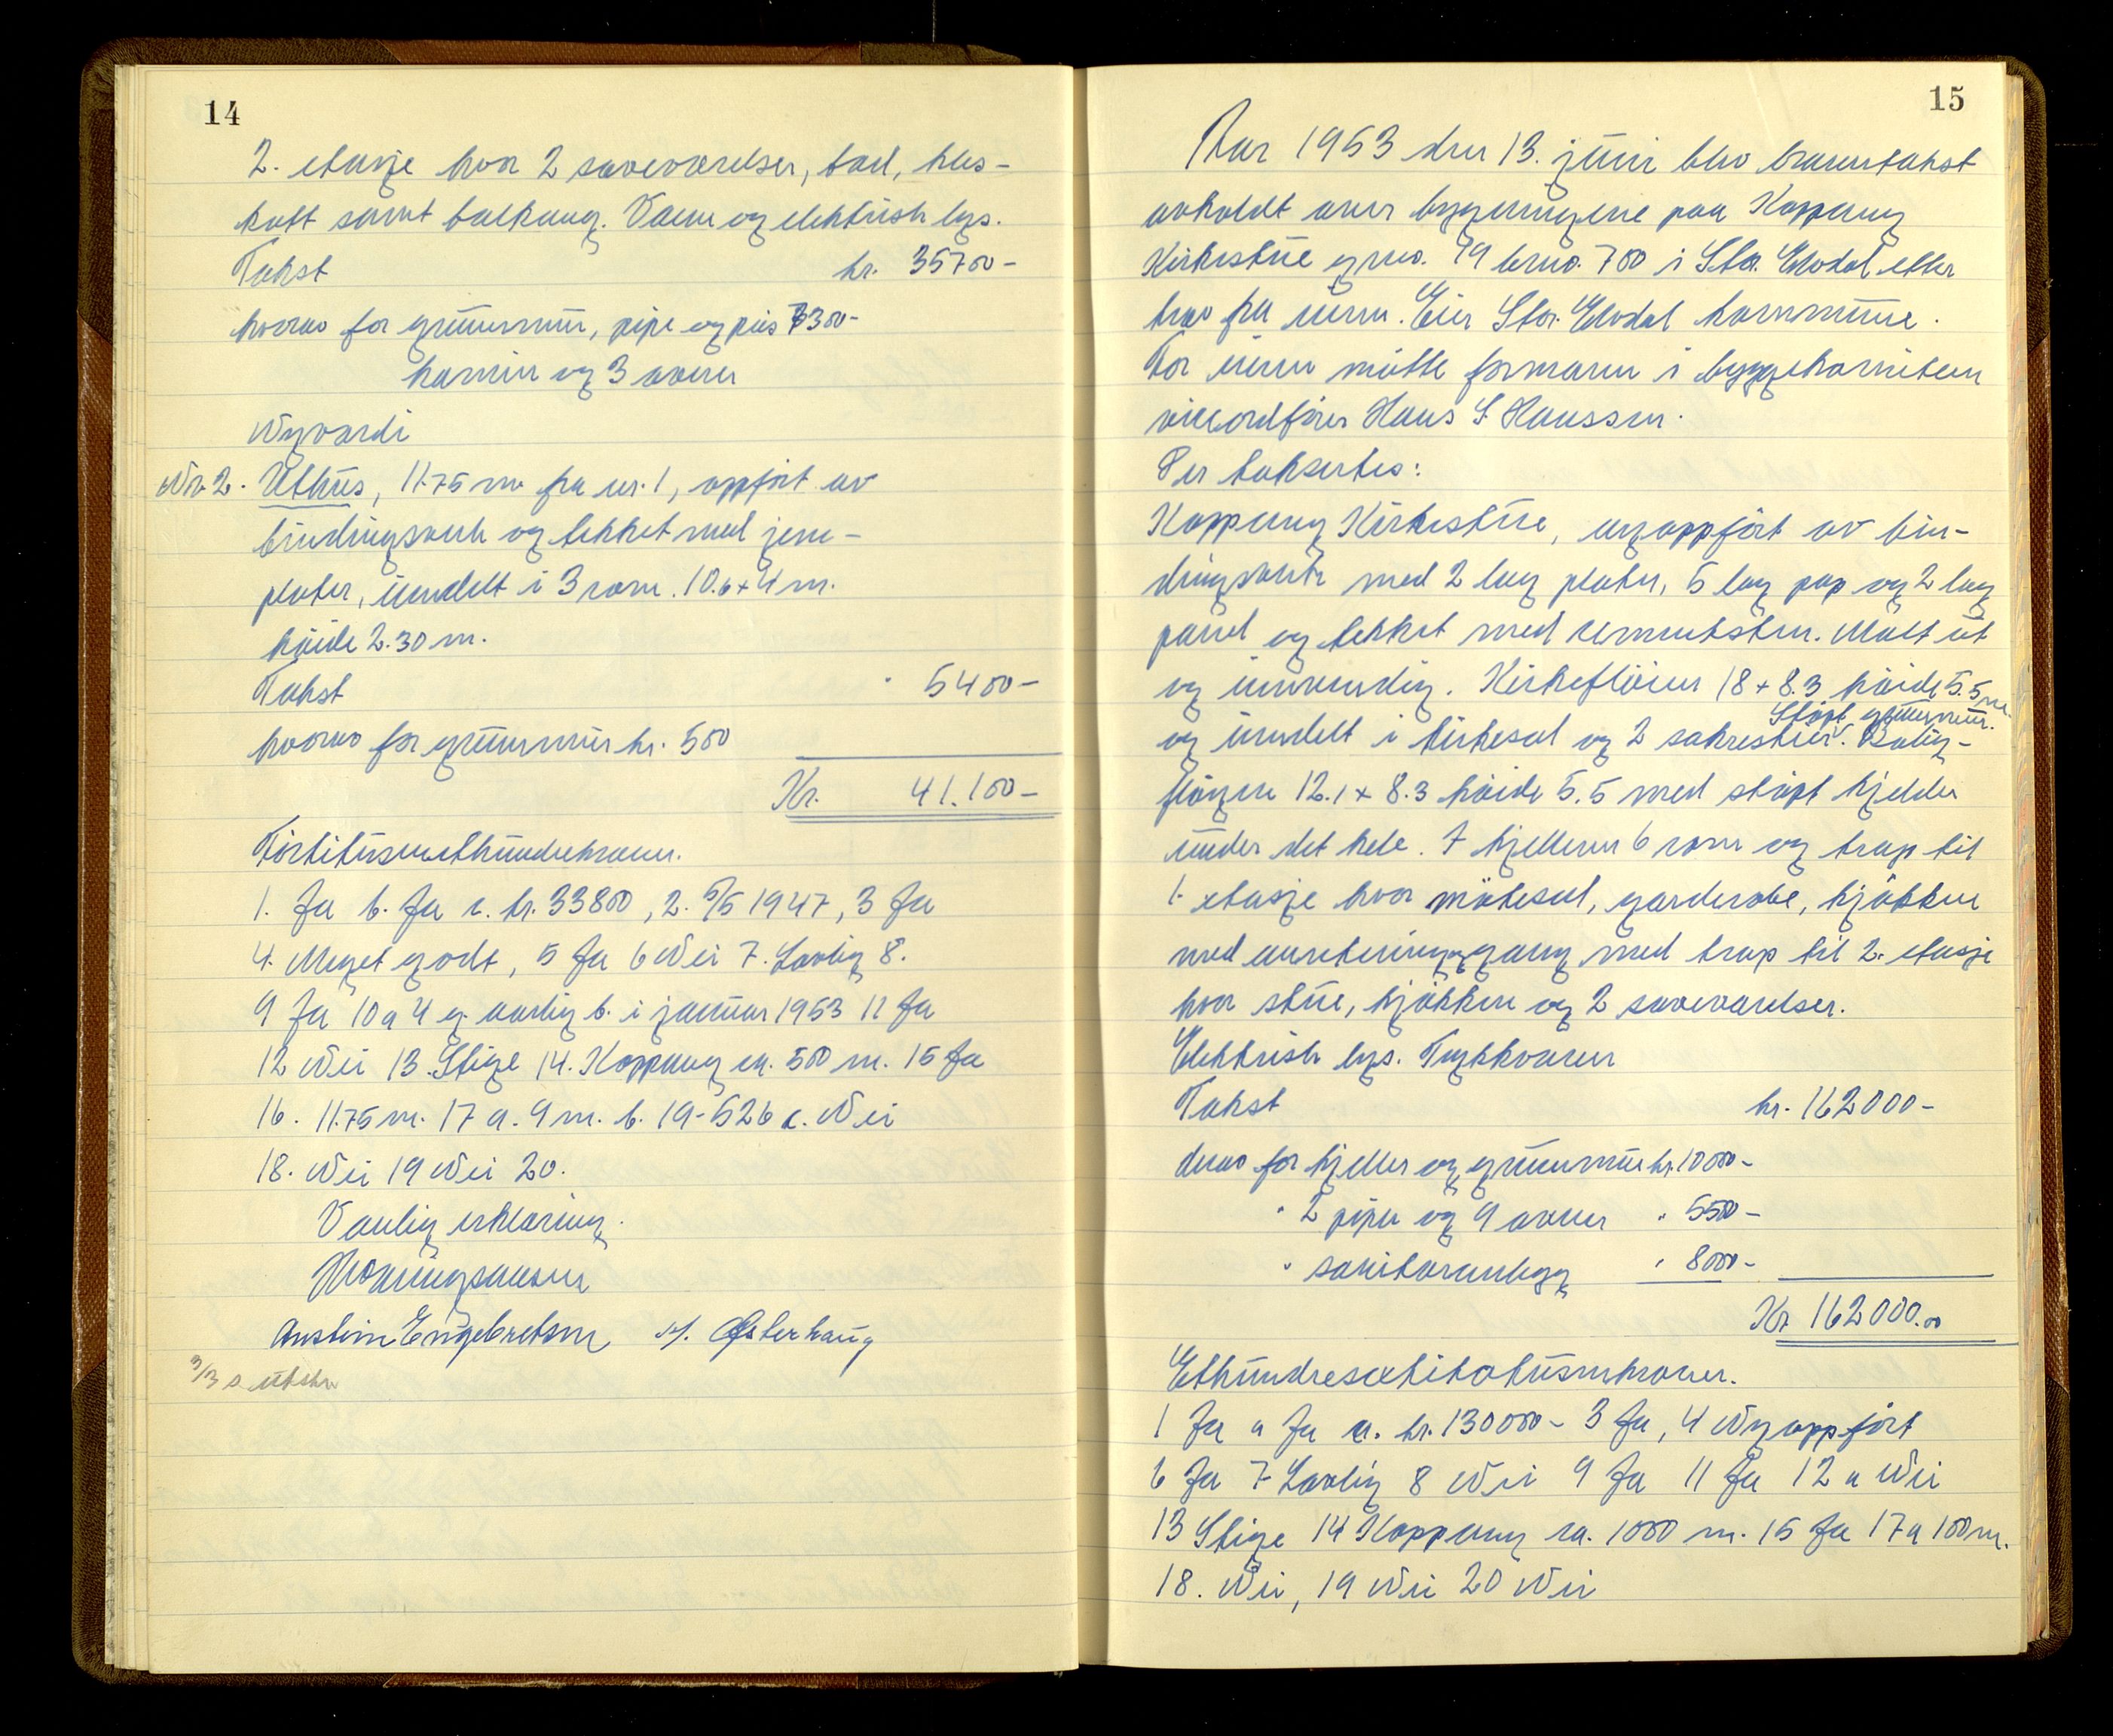 14
2. etasje hvor 2 soveværelser, bad, kles-
kott samt balkong. Vann og elektrisk lys.
Takst kr. 35700-
hvorav for grunnmur, pipe og peis 7300-
kamin og 3 ovner
Nyverdi
Nr. 2. Uthus, 11.75 m fra nr. 1, oppført av
bindingsverk og tekket med jern-
plater, inndelt i 3 rom. 10.6 + 4 m.
høide 2.30 m.
Takst " 5400-
hvorav for grunnmur kr. 500
Kr. 41.100-
Førtitusenethundrekroner.
1. Ja b. Ja c. kr. 33800, 2. 5/5 1947, 3 Ja
4. Meget godt, 5 Ja 6 Nei 7. Lovlig 8.
9 Ja 10 a 4 g. aarlig b. i januar 1953 11 Ja
12 Nei 13. Stige 14. Koppang ca. 500 m. 15 Ja
16. 11.75 m. 17 a. 9 m. b. 19-526 c. Nei
18. Nei 19 Nei 20.
Vanlig erklæring.
Austein Engebretsen M. Østerhaug
15
Aar 1953 den 13. juni blev branntakst
avholdt over bygningene paa Koppang
Kirkestue gno. 19 bno. 700 i Stor-Elvdal etter
krav fra eieren. Eier Stor-Elvdal kommune.
For eieren møtte formann i byggekomiteen
viceordfører Hans S. Hanssen.
Der taksertes:
Koppang Kirkestue, nyoppført av bin-
dingsverk med 2 lag plater, 5 lag pap og 2 lag
panel og tekket med sementsten. Malt ut
og innvendig. Kirkefløien 18 + 8.3 høide 5.5 m.
Støpt grunnmur.
og inndelt i kirkesal og 2 sakrestier. Bolig-
fløyen 12.1 + 8.3 høide 5.5 med støpt kjelder
under det hele. I kjelleren 6 rom og trap til
1. etasje hvor møtesal, garderobe, kjøkken
med anretning, gang med trap til 2. etasje
hvor stue, kjøkken og 2 soveværelser.
Elektrisk lys. Trykkvann
Takst kr. 162000-
derav for kjeller og grunnmur kr. 10000-
" 2 piper og 9 ovner " 5500-
" sanitæranlegg " 8000-
Kr. 162000.00
Ethundresextitotusenkroner.
1 Ja a Ja c. kr. 130000- 3 Ja, 4 Nyoppført
6 Ja 7 Lovlig 8 Nei 9 Ja 11 Ja 12 a Nei
13 Stige 14 Koppang ca. 1000 m. 15 Ja 17 a 100 m.
18. Nei, 19 Nei 20 Nei